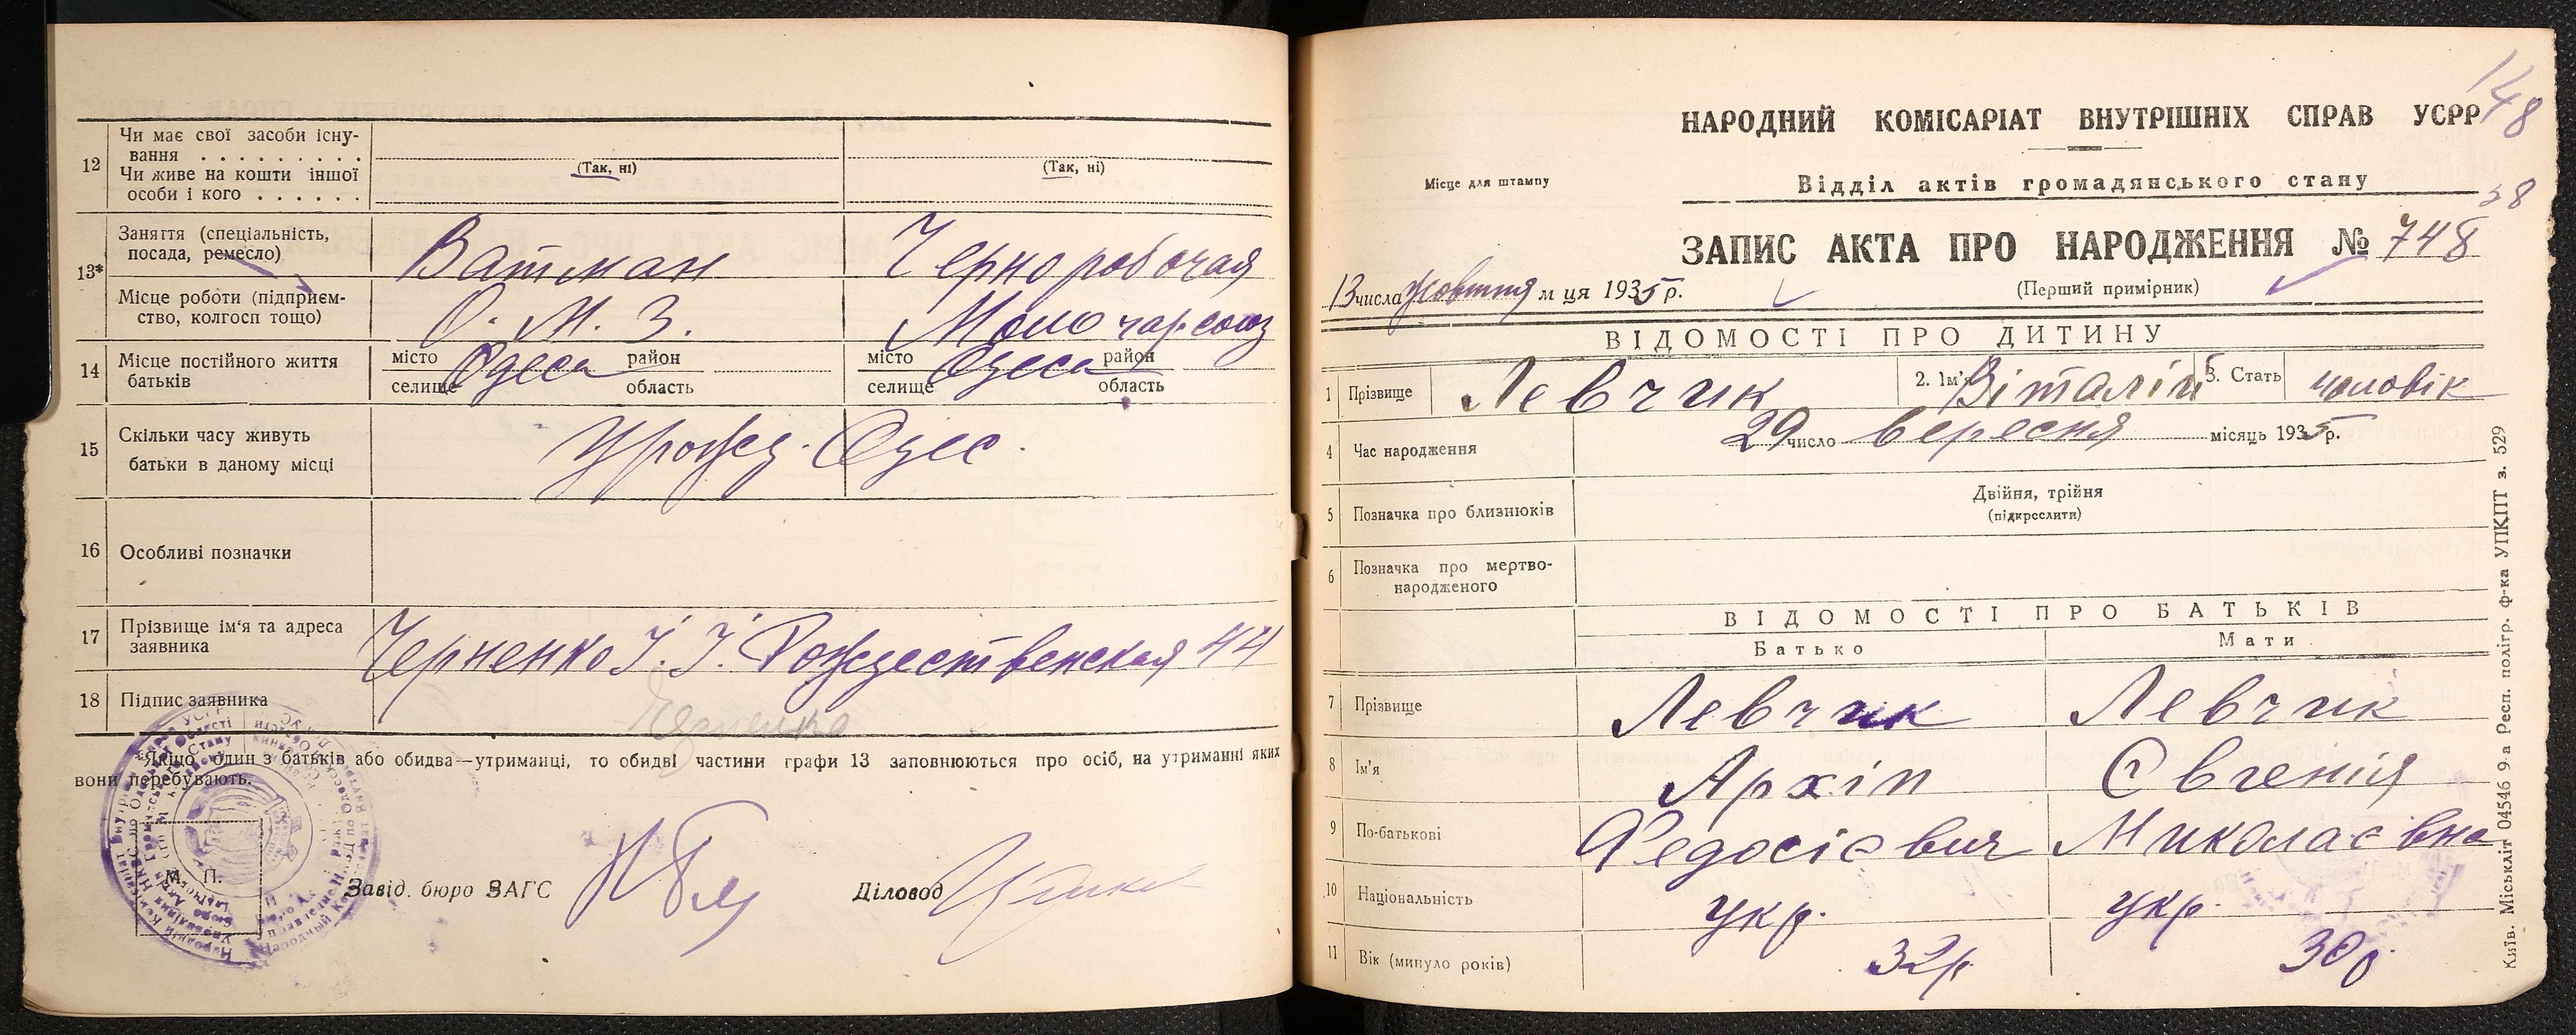 12 Чи має свої засоби існу-
вання . . . . . . . . .
Чи живе на кошти іншої
особи і кого . . . . . .
(Так, ні) (Так, ні)
13* Заняття (спеціальність,
посада, ремесло) Ватман Чернорабочая
Місце роботи (підприєм-
ство, колгосп тощо) О. М. З. Молочарсоюз
14 Місце постійного життя
батьків
місто селище Одеса район область місто селище Одеса район область
15 Скільки часу живуть
батьки в даному місці Урожд. Одес.
16 Особливі позначки
17 Прізвище ім'я та адреса
заявника Черненко І. І. Рождественская 44
18 Підпис заявника
*Якщо один з батьків або обидва—утриманці, то обидві частини графи 13 заповнюються про осіб, на утриманні яких
вони перебувають.
М. П.
Завід. бюро ЗАГС Діловод
148
НАРОДНИЙ КОМІСАРІАТ ВНУТРІШНІХ СПРАВ УСРР
Місце для штампу
Відділ актів громадянського стану
58
ЗАПИС АКТА ПРО НАРОДЖЕННЯ № 748
13 числа жовтня м ця 1935 р.
(Перший примірник)
ВІДОМОСТІ ПРО ДИТИНУ
1 Прізвище Левчик 2. Ім'я Віталій 3. Стать чоловік
4 Час народження 29 число вересня місяць 1935 р.
5 Позначка про близнюків Двійня, трійня
(підкреслити)
6 Позначка про мертво-
народженого
ВІДОМОСТІ ПРО БАТЬКІВ
Батько Мати
7 Прізвище Левчик Левчик
8 Ім'я Архіп Євгенія
9 По-батькові Федосієвич Миколаєвна
10 Національність укр. укр.
11 Вік (минуло років) 32р. 30р.
Київ. Міськліт 04546 9-а Респ. полігр. ф-ка УПКПТ з. 529